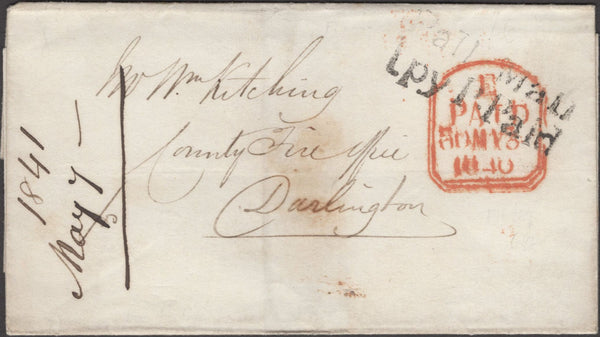 Mr Wm Kitching
County Fire Office
Darlington
1841
May 7
Pall Mall
1py P Paid
E
PAID
8MY8
1840